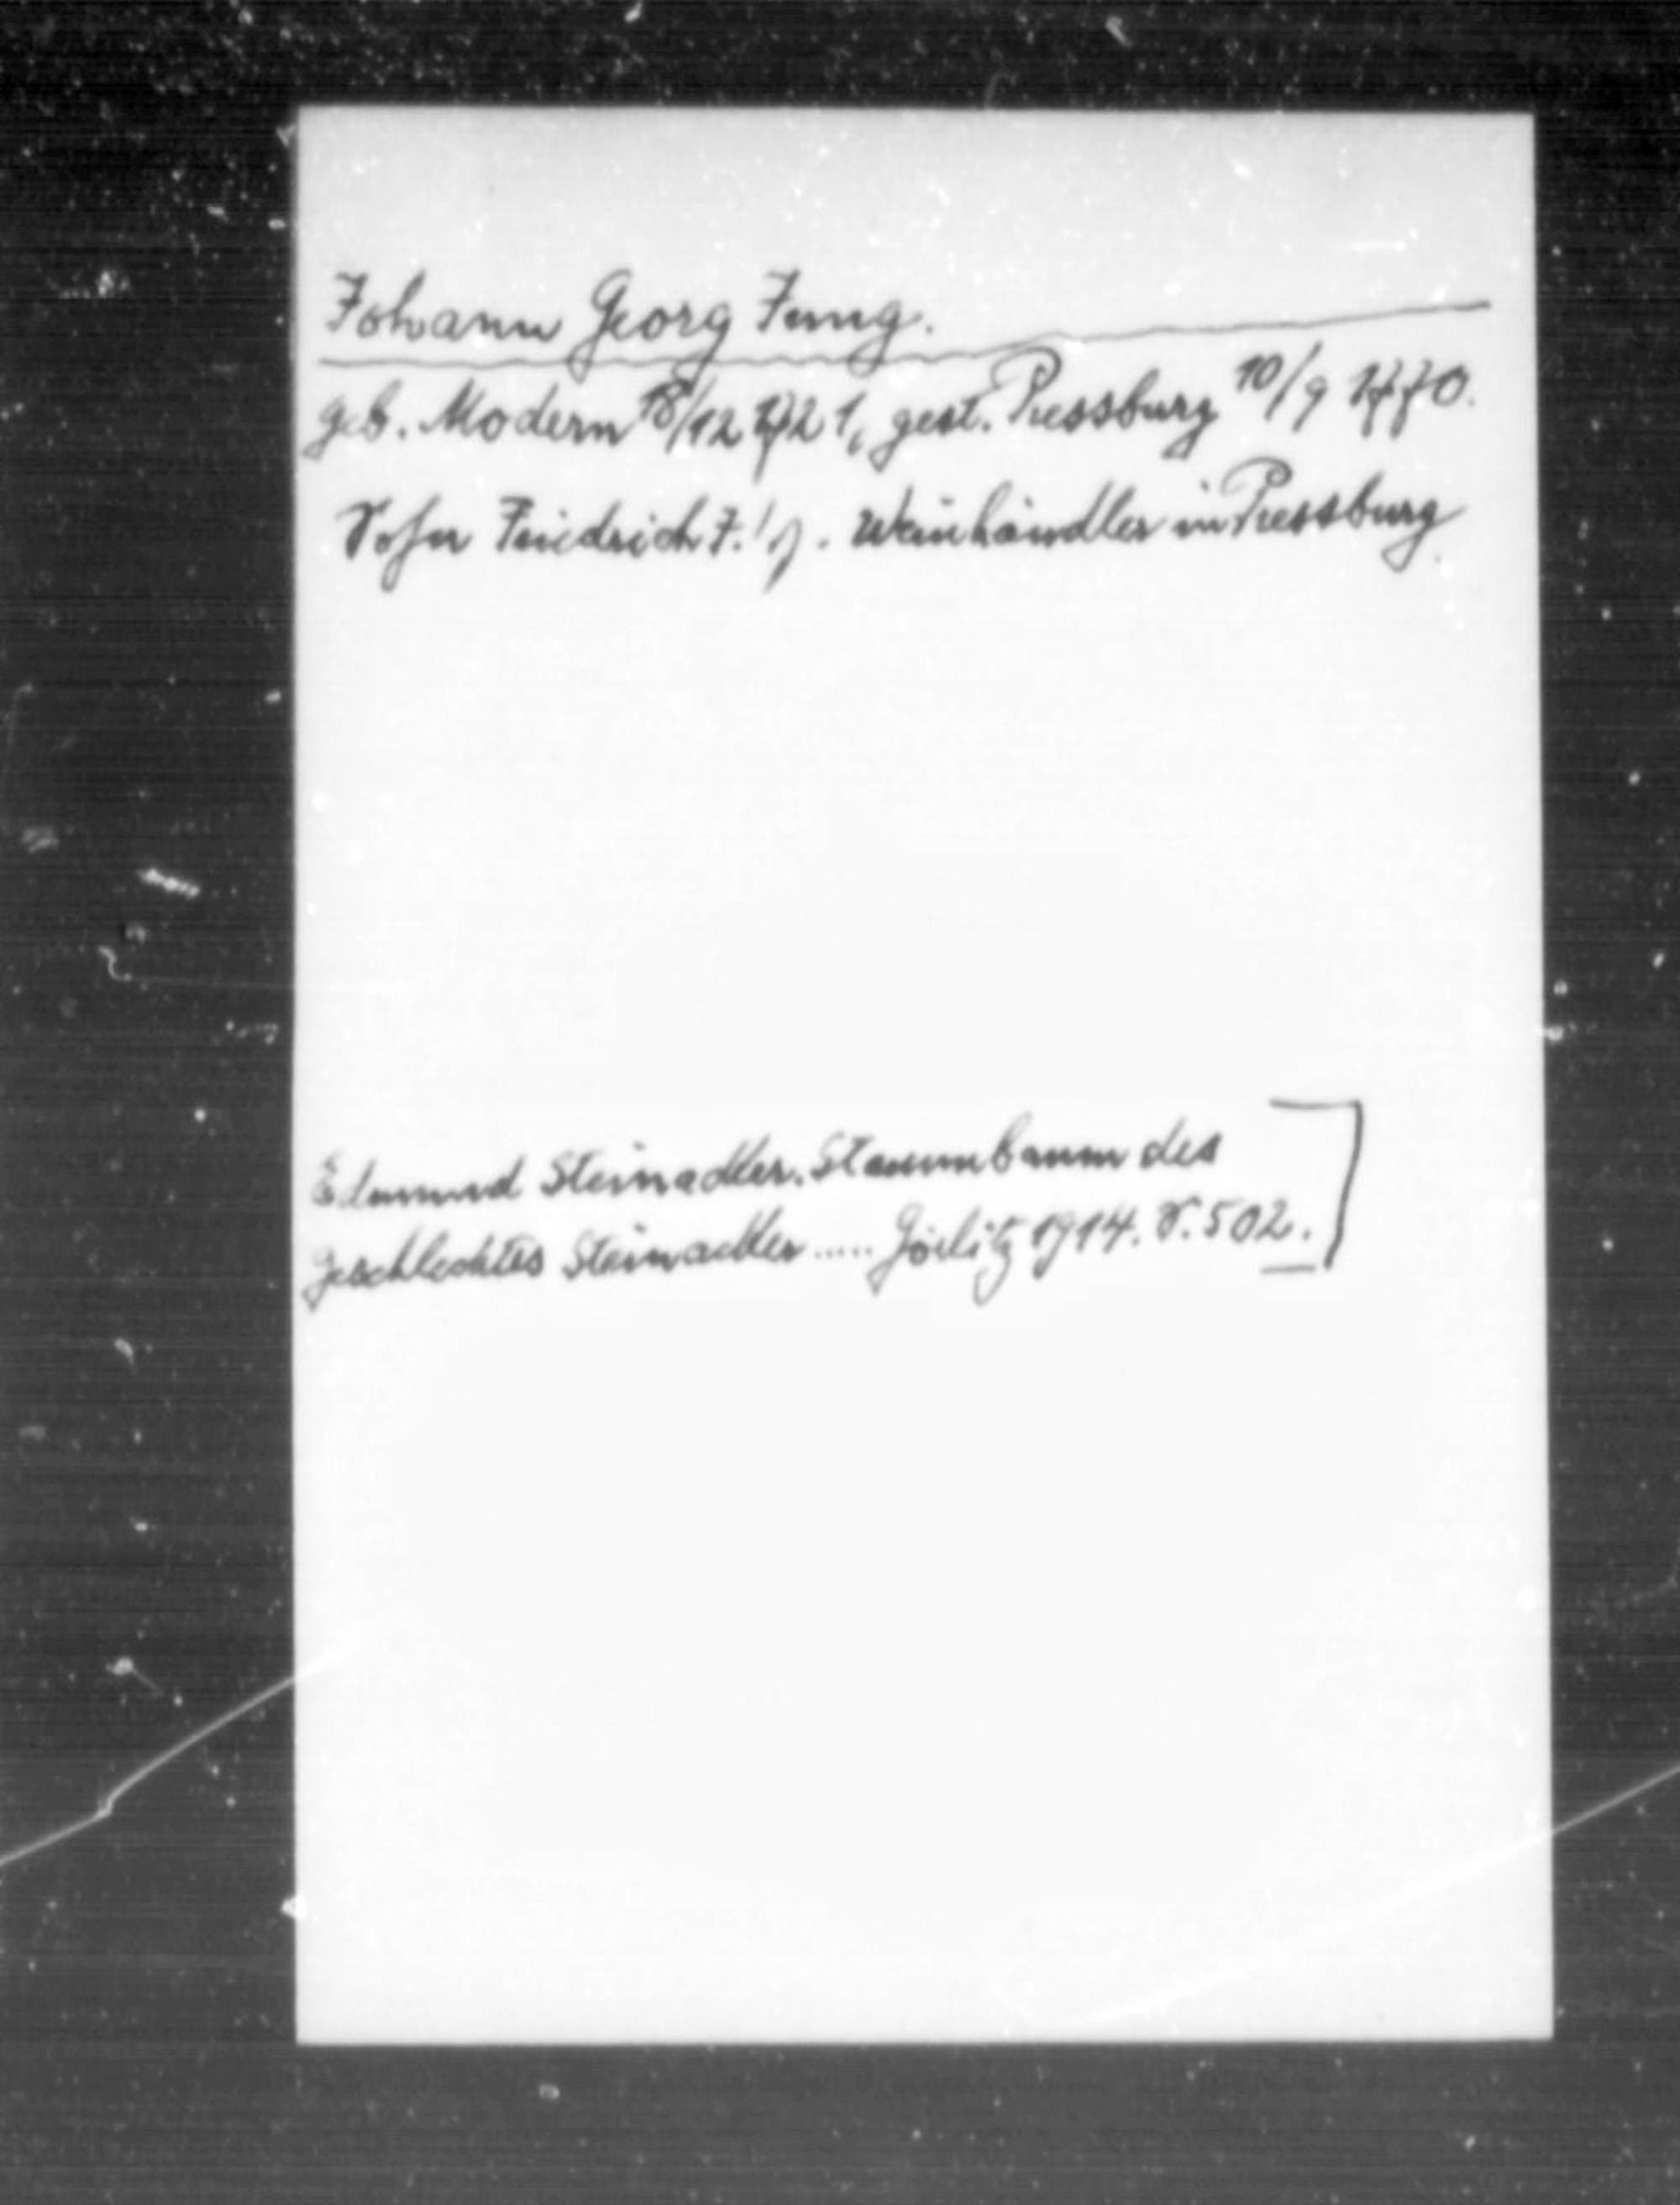 Johann Georg Jung.
geb. Modern 18/12 1721, gest. Pressburg 10/9 1770.
Sohn Friedrich J. Weinhändler in Pressburg
Edmund Steinacker. Stammbaum des
Geschlechtes Steinacker ..... Görlitz 1914. S. 502.]